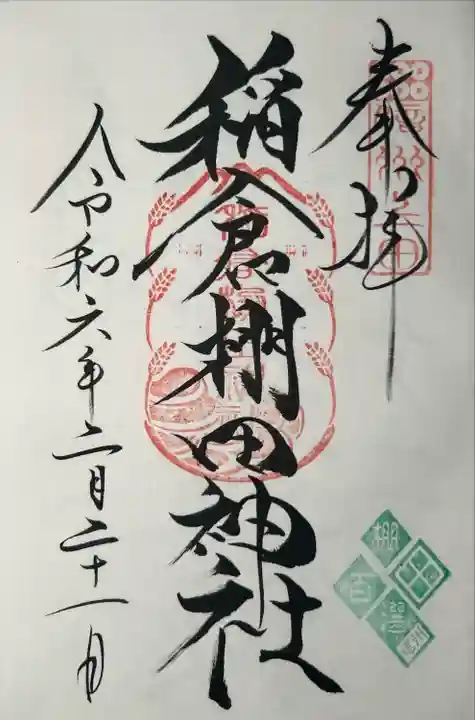 奉拝
稲倉棚田神社
令和六年二月二十一日
棚田百選